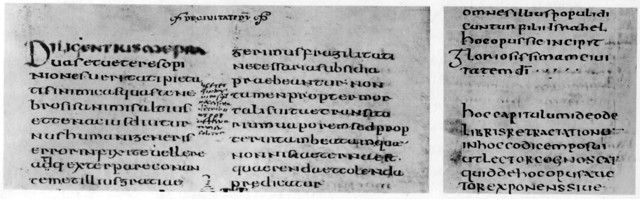 DECIVITATEDI
DILIGENTIUSMEPRA
UASETUETERESOPI
NIONESUERITATIPIETA
TISINIMICASQUASTENE
BROSISANIMISALTIUS
ETTENACIUSDIUTUR
NUSHUMANIGENERIS
ERRORINFIXITEUELLERE
EXTIRPARECONAN
TEMETILLIUSGRATIAE
GERIMUSFRAGILITATI
NECESSARIASUBSIDIA
PRAEBEANTURNON
TAMENPROPTERMOR
TALISUITAETRANSITO
RIUMUAPOREMSEDPROP
TERUITAMBEATAMQUAE
NONNISIAETERNAEST
QUAERENDAETCOLENDA
PREDICATUR
OMNESILLIUSPOPULIDI
CUNTURFILIIISRAHEL
HOCOPUSSICINCIPIT
GLORIOSISSIMAMCIUI
TATEMDI
HOCCAPITULUMDEODE
LIBRISRETRACTATIONU
INHOCCODICEMPOSUI
UTLECTORCOGNOSCAT
QUIDDEHOCOPUSAUC
TOREXPONENSSIUE